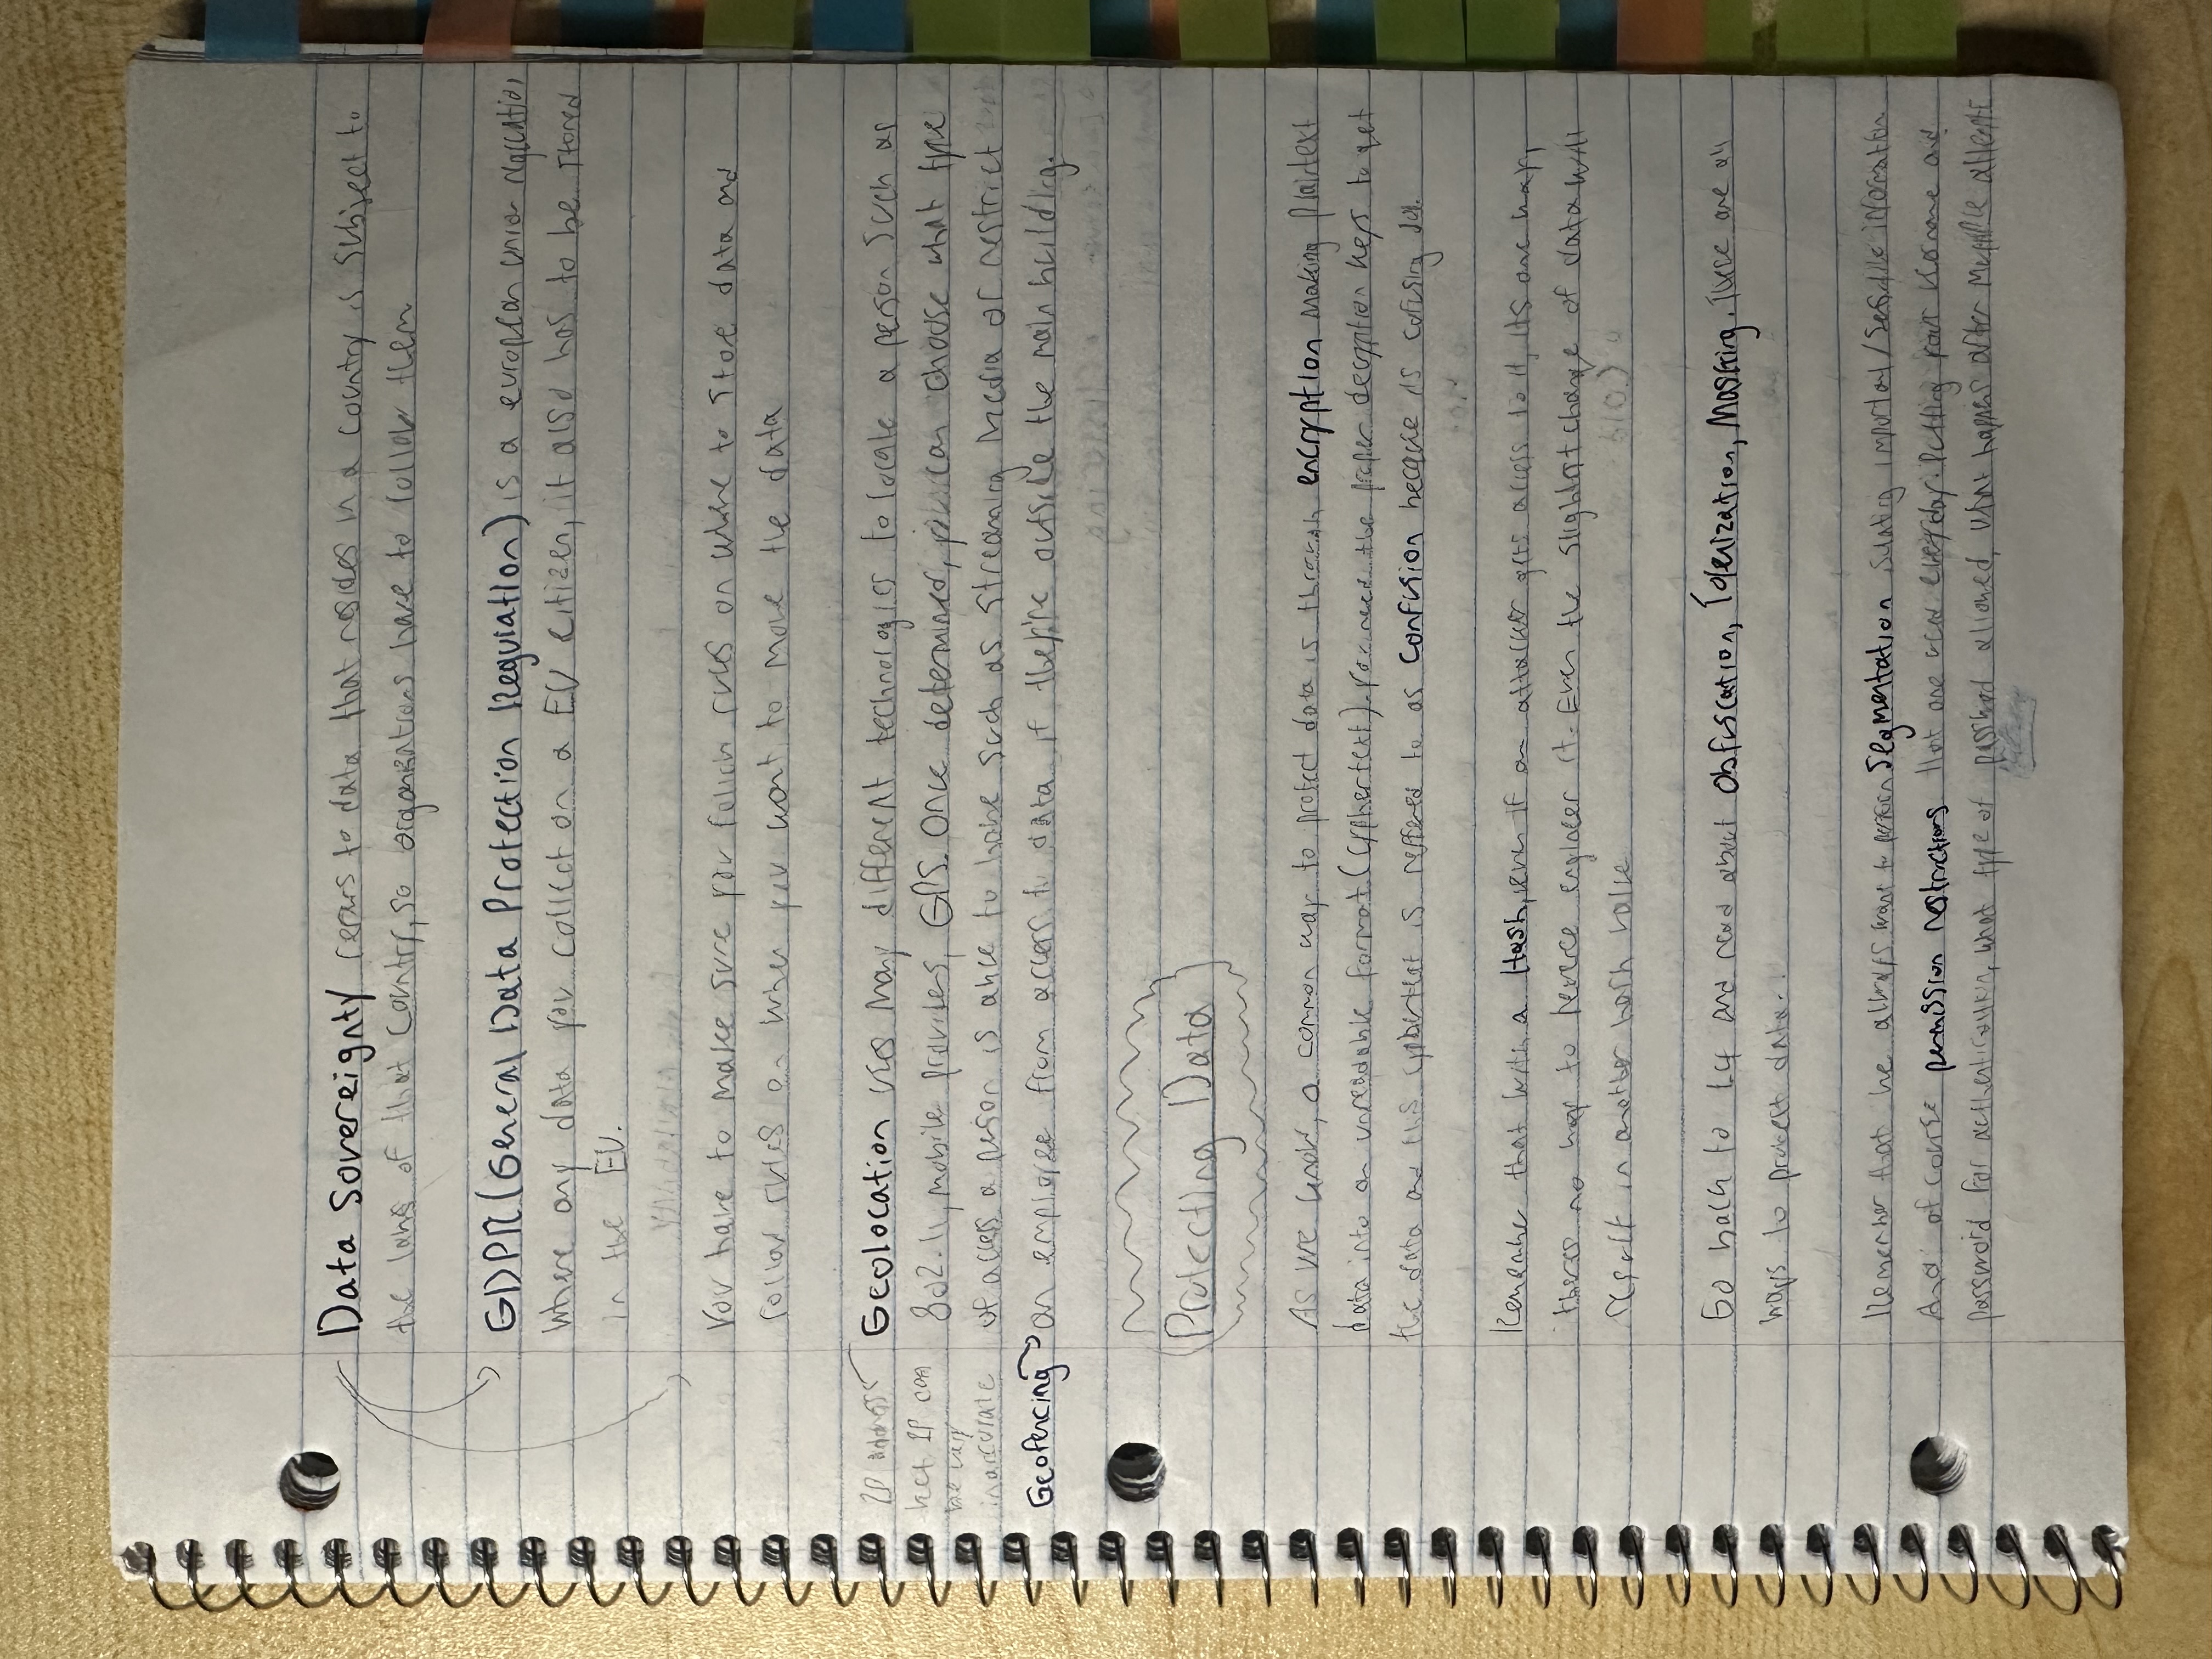 Data Sovereignty refers to data that resides in a country is subject to
the laws of that country, so organizations have to follow them
GDPR (General Data Protection Regulation) is a european union regulation
where any data you collect on a EU citizen, it also has to be stored
in the EU.
You have to make sure you follow rules on where to store data and
follow rules on when you want to move the data
IP address
but IP can
be very
inaccurate
Geolocation uses many different technologies to locate a person such as
802.11, mobile providers, GPS. Once determined, you can choose what type
of access a person is able to have such as streaming media or restrict
Geofencing an employee from access to data if they're outside the main building.
Protecting Data
As we know, a common way to protect data is through encryption making plaintext
data into an unreadable format (cyphertext). You need the proper decryption keys to get
the data and this cyphertext is reffered to as confusion because is cofusing
Remember that with a Hash, even if an attacker gets access to it, its one way,
theres no way to reverse engineer it. Even the slightest change of data will
result in another hash value
Go back to 1.4 and read about Obfuscation, Tokenization, Masking. These are all
ways to protect data.
Remember that we always want to Segmentation important/ information
And of course permission restrictions that are used everyday. Putting your username and
password for authentication, what type of password allowed, what happens after multiple attempts